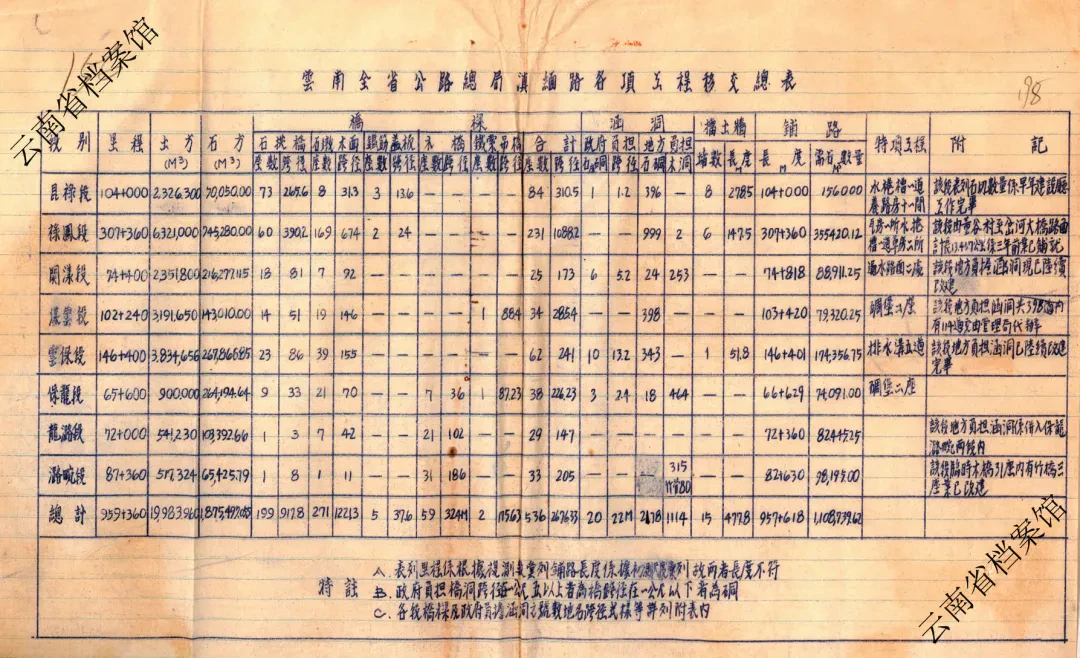 云南省档案馆
198
雲南全省公路總局滇緬路各項工程移交總表
段別 里程 土方(M³) 石方(M³) 橋樑 涵洞 擋土牆 鋪路 特項工程 附記
石拱橋 石墩木面 鋼筋蓋板 木橋 鐵索吊橋 合計 政府負担 地方負担
座數 跨徑 座數 跨徑 座數 跨徑 座數 跨徑 座數 跨徑 座數 跨徑 石涵洞 跨徑 石涵洞 木洞 墙數 長度 長度 需石數量
昆祿段 104+000 2,326,300 70,050.00 73 265.6 8 31.3 3 13.6 — — — — 84 310.5 1 1.2 396 — 8 278.5 104+0.00 1560.00 水櫈橋一道 養路房十一間 該段表列石切數量係早年建設廳工作完畢
祿鳳段 307+360 6,321,000 745,280.00 60 390.2 169 674 2 24 — — — — 231 1088.2 — — 999 2 6 147.5 307+360 355420.12
関漾段 74+400 2,351,800 216,277.115 18 81 7 92 — — — — — — 25 173 6 5.2 24 253 — — 74+818 88,911.25 過水路面二處 該段地方負擔涵洞現已陸續改建
漾雲段 102+240 3,191,650 143,010.00 14 51 19 146 — — — — 1 88.4 34 285.4 — — 398 — — — 103+420 79,320.25 碉堡二座 該段地方負担涵洞共398道內有114道完由管理局代辦
雲保段 146+400 3,834,656 267,866.85 23 86 39 155 — — — — — — 62 241 10 13.2 343 — 1 51.8 146+401 174,356.75 排水溝五道 該段地方負担涵洞已陸續改建完畢
保龍段 65+600 900,000 264,194.64 9 33 21 70 — — 7 36 1 87.23 38 226.23 3 2.4 18 464 — — 66+629 74,091.00 碉堡二座
龍潞段 72+000 541,230 108,392.66 1 3 7 42 — — 21 102 — — 29 147 — — — — — — 72+360 82445.25 該段地方負担涵洞係併入保龍潞畹兩段內
潞畹段 87+360 517,324 65,425.79 1 8 1 11 — — 31 186 — — 33 205 — — 315 竹管80 — — 82+630 98,195.00 該段臨時木橋31座內有竹橋三座業已改建
總計 959+360 19,983,960 1,875,497.035 199 917.8 271 1221.3 5 37.6 59 324M 2 175.63 536 2676.33 20 22M 2178 1114 15 477.8 957+618 1,108,739.62
特註
A. 表列里程係根據視測數彙列鋪路長度係據初測數彙列故兩者長度不符
B. 政府負担橋洞跨徑在一公尺五以上者為橋跨徑在一公尺以下者為洞
C. 各段橋樑及政府負擔涵洞之號數地名跨徑式樣等詳列附表內
云南省档案馆